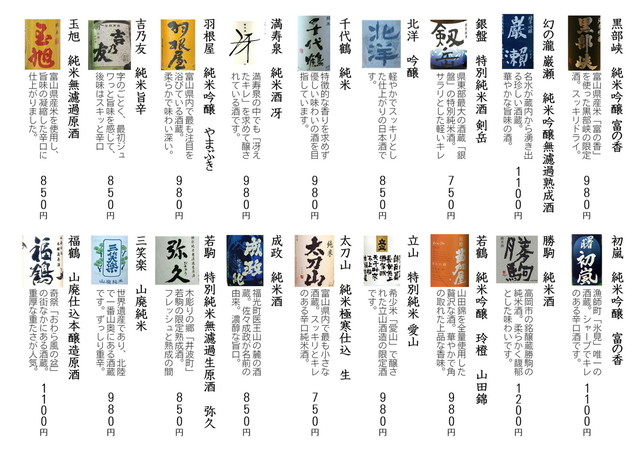 黒部峡　純米吟醸　富の香
富山県産米「富の香」
を使った黒部峡の限定
酒。スッキリドライ。
980円
幻の瀧 巌瀬　純米吟醸無濾過熟成酒
名水が蔵内から湧き出
る珍しい酒蔵。
華やかな旨味の酒。
1100円
銀盤　特別純米酒 剣岳
県東部最大の酒蔵「銀
盤」の特別純米酒。
サラリとした軽いキレ
750円
北洋　吟醸
軽やかでスッキリとし
た仕上がりの日本酒で
す。
850円
千代鶴　純米
特徴的な香りを求めず
優しい味わいの酒を目
指しています。
980円
満寿泉　純米酒 冴
満寿泉の中でも「冴え
たキレ」を求めて醸さ
れている酒です。
980円
羽根屋　純米吟醸　やまぶき
富山県内で最も注目を
浴びている酒蔵。
柔らかで味わい深い。
980円
吉乃友　純米旨辛
字のごとく、最初ジュ
ワっと旨味を感じて、
後味はスキッと辛口
850円
玉旭　純米無濾過原酒
富山県産米を使用し、
旨味の凝縮した辛口に
仕上がりました。
850円
初嵐　純米吟醸　富の香
漁師町「氷見」唯一の
酒蔵。シャープでキレ
のある辛口酒です。
1100円
勝駒　純米酒
高岡市の銘醸蔵勝駒の
純米酒。柔らかく馥郁
とした味わいです。
1200円
若鶴　純米吟醸　玲橙　山田錦
山田錦を全量使用した
贅沢な酒。華やかで角
の取れた上品な香味。
980円
立山　特別純米 愛山
希少米「愛山」で醸さ
れた立山酒造の限定酒
です。
980円
太刀山　純米極寒仕込　生
富山県内で最も小さな
酒蔵。スッキリとキレ
のある辛口純米酒。
750円
成政　純米酒
福光町医王山の麓の酒
蔵。佐々成政が名前の
由来。濃醇な旨口。
850円
若駒　特別純米無濾過生原酒　弥久
木彫りの郷「井波町」
若駒の限定熟成酒。
フレッシュと熟成の間
850円
三笑楽　山廃純米
世界遺産であり、北陸
で一番山奥にある酒蔵
です。ずっしり重辛。
980円
福鶴　山廃仕込本醸造原酒
奇祭「おわら風の盆」
の街なかにある酒蔵。
重厚な重たさが人気。
1100円